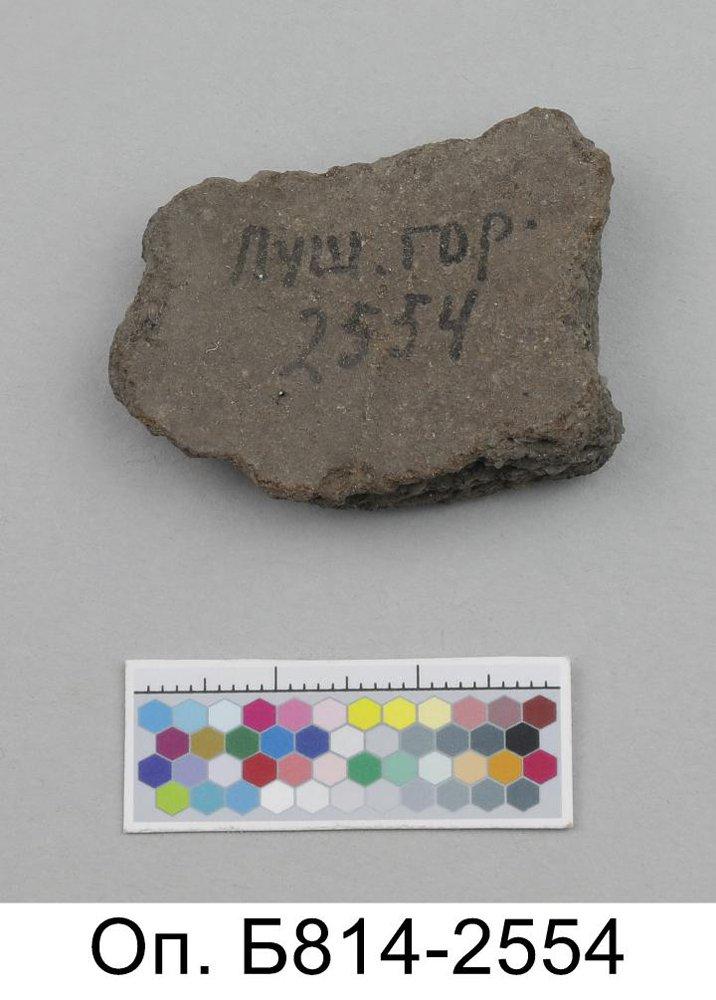 Пуш. гор.
2554
Оп. Б814-2554